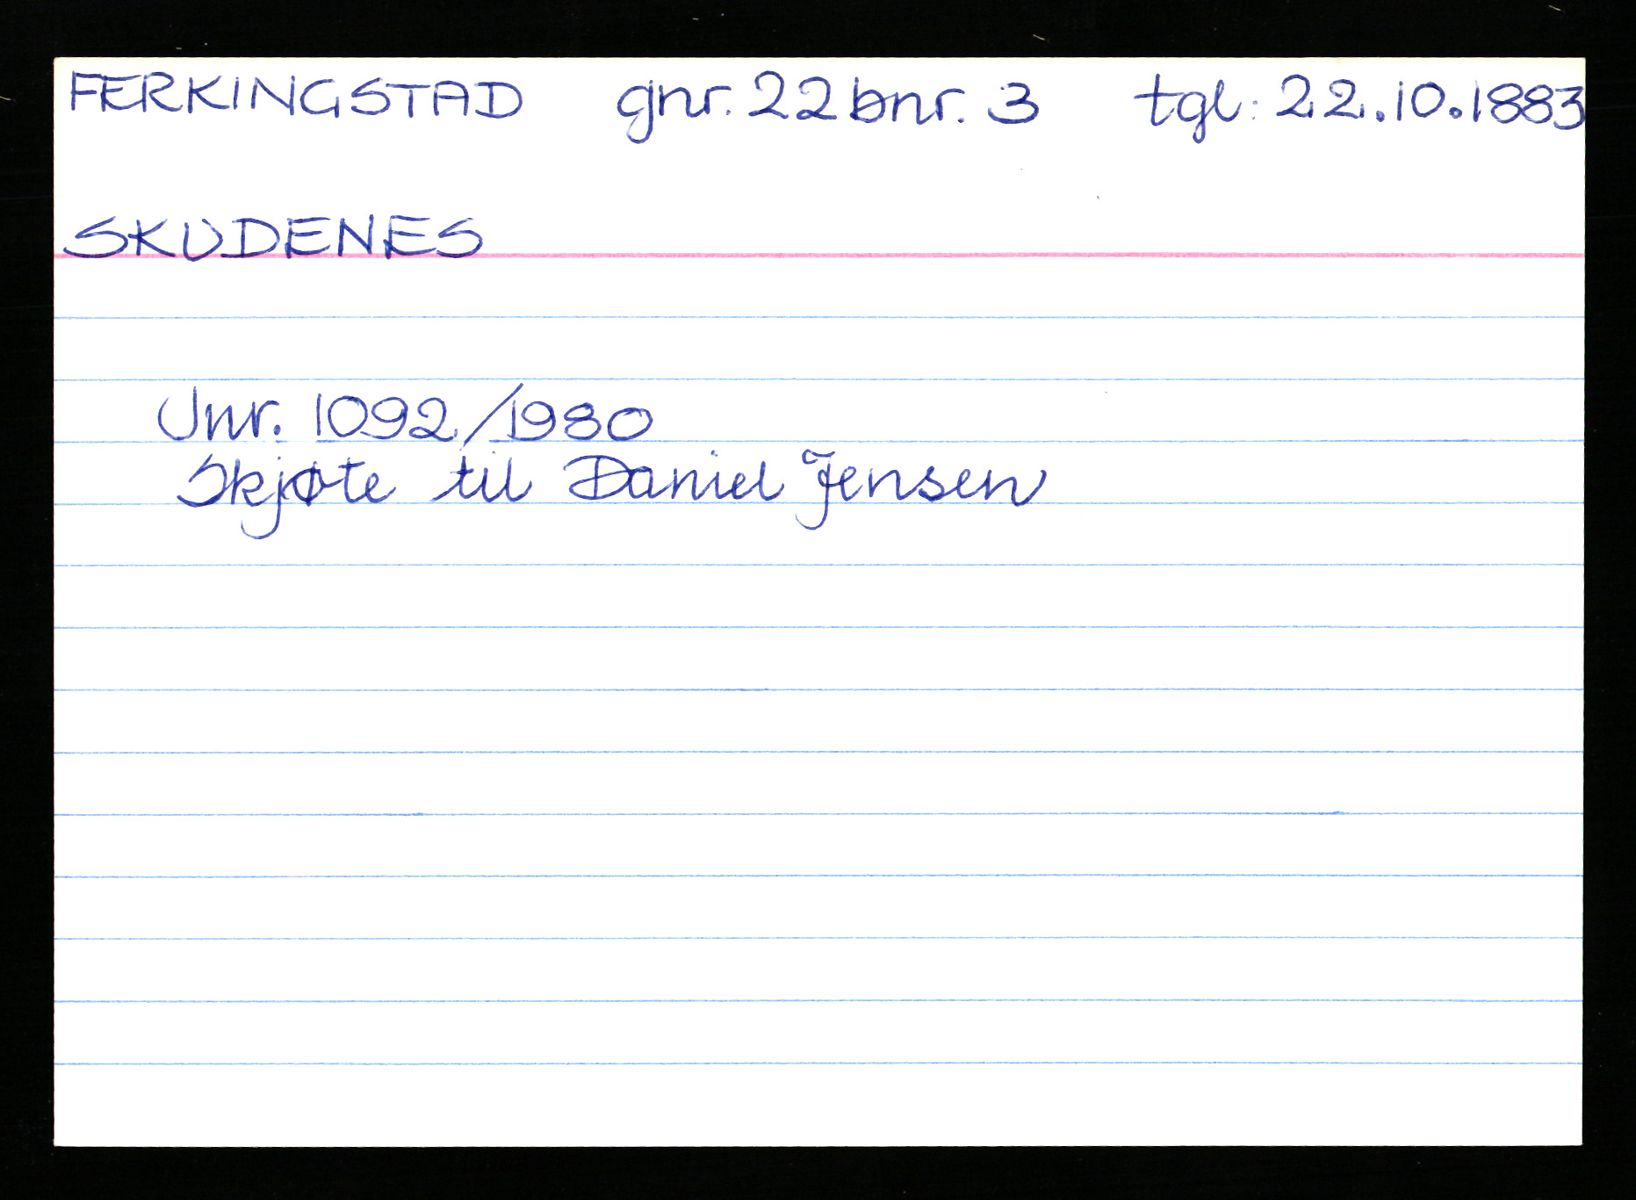 FERKINGSTAD gnr. 22 bnr. 3 tgl: 22.10.1883
SKUDENES
Jnr. 1092/1980
Skjøte til Daniel Jensen